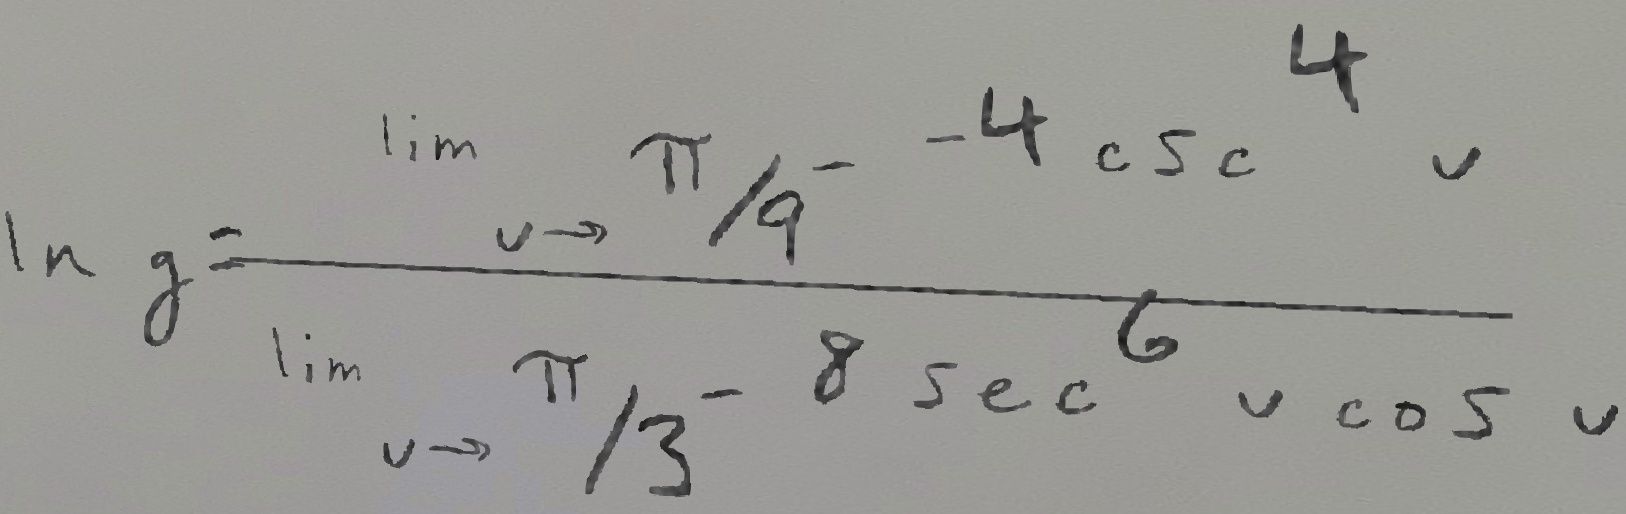 \ln g = \frac{\lim_{v \to \pi/9^-} -4 \csc^4 v}{\lim_{v \to \pi/3^-} 8 \sec^6 v \cos v}